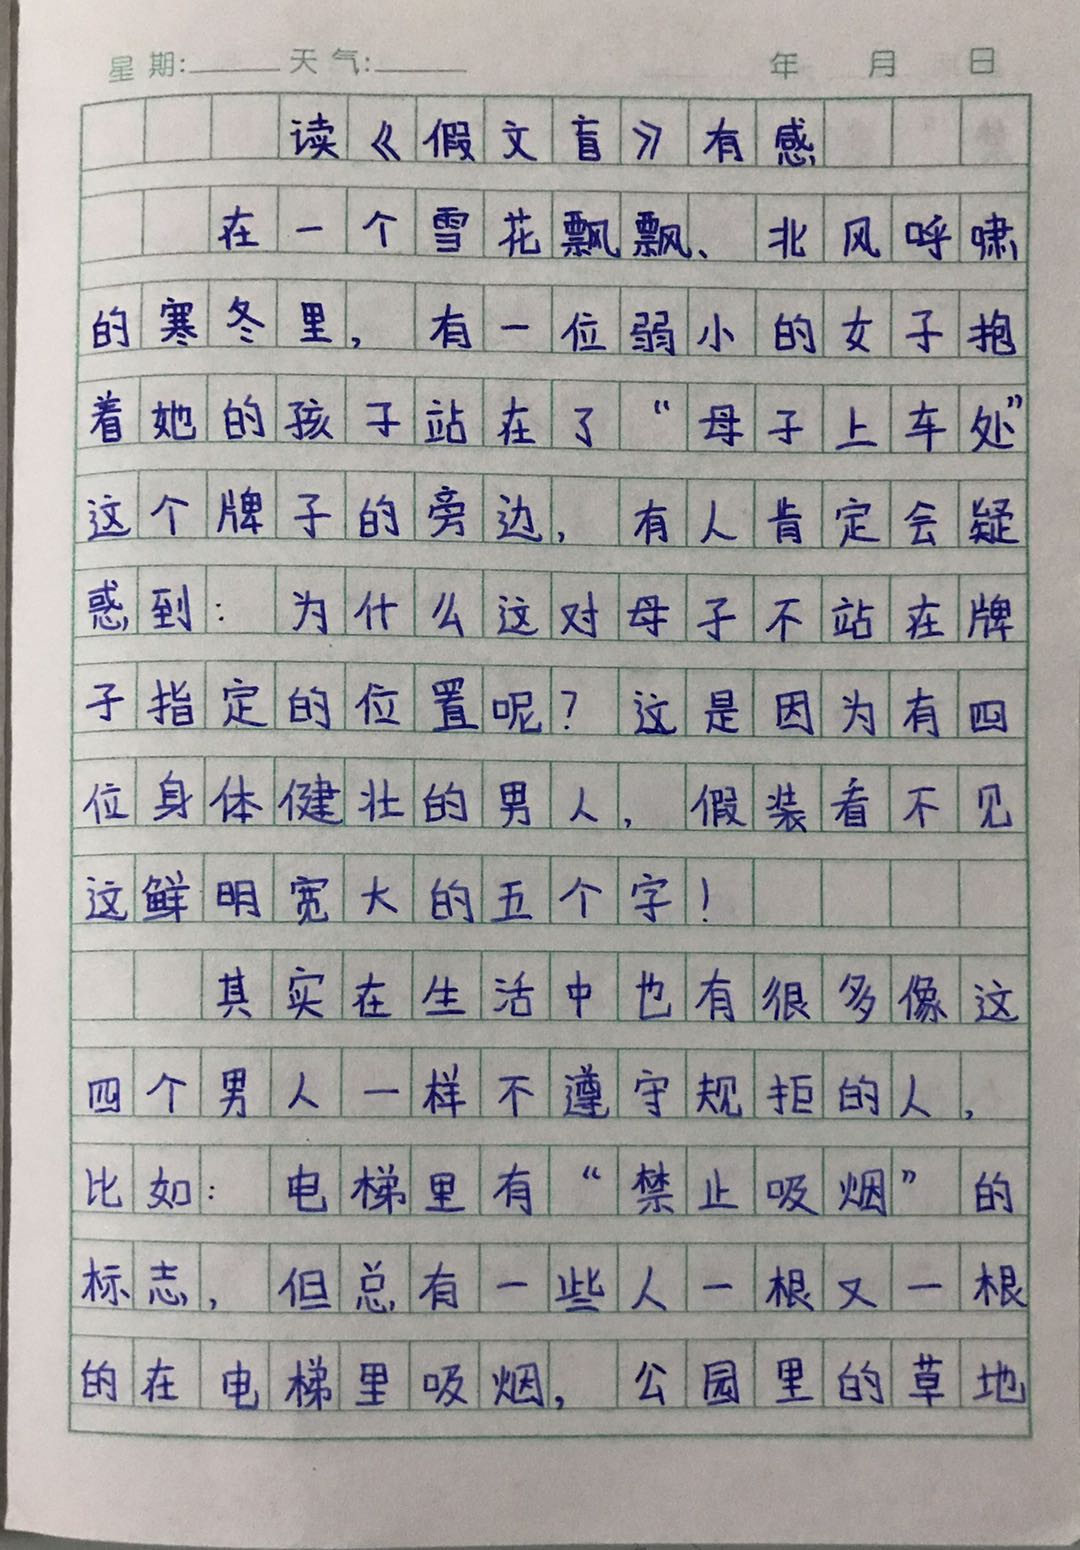 星期: 天气: 年 月 日
读《假文盲》有感
在一个雪花飘飘、北风呼啸
的寒冬里，有一位弱小的女子抱
着她的孩子站在了“母子上车处”
这个牌子的旁边，有人肯定会疑
惑到：为什么这对母子不站在牌
子指定的位置呢？这是因为有四
位身体健壮的男人，假装看不见
这鲜明宽大的五个字！
其实在生活中也有很多像这
四个男人一样不遵守规拒的人，
比如：电梯里有“禁止吸烟”的
标志，但总有一些人一根又一根
的在电梯里吸烟，公园里的草地